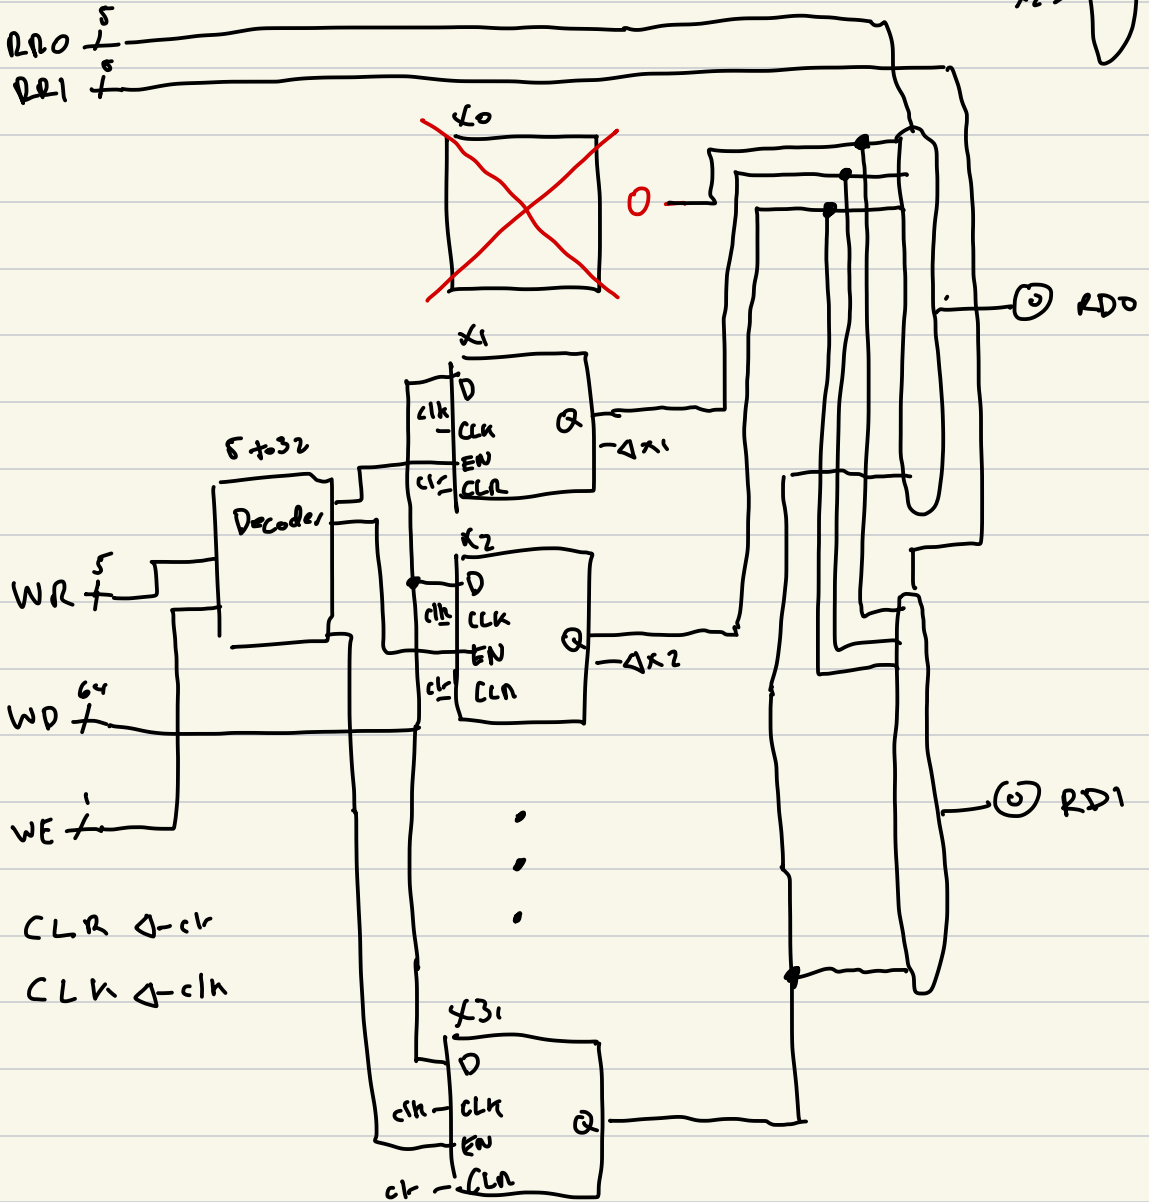 5
RR0
5
RR1
X0
0
RD0
X1
D
clk
CLK
Q
EN
clr
CLR
X1
5 to 32
Decoder
X2
D
clk
CLK
Q
EN
X2
clr
CLR
5
WR
64
WD
1
WE
RD1
CLR clr
CLK clk
X31
D
clk CLK
Q
EN
clr CLR